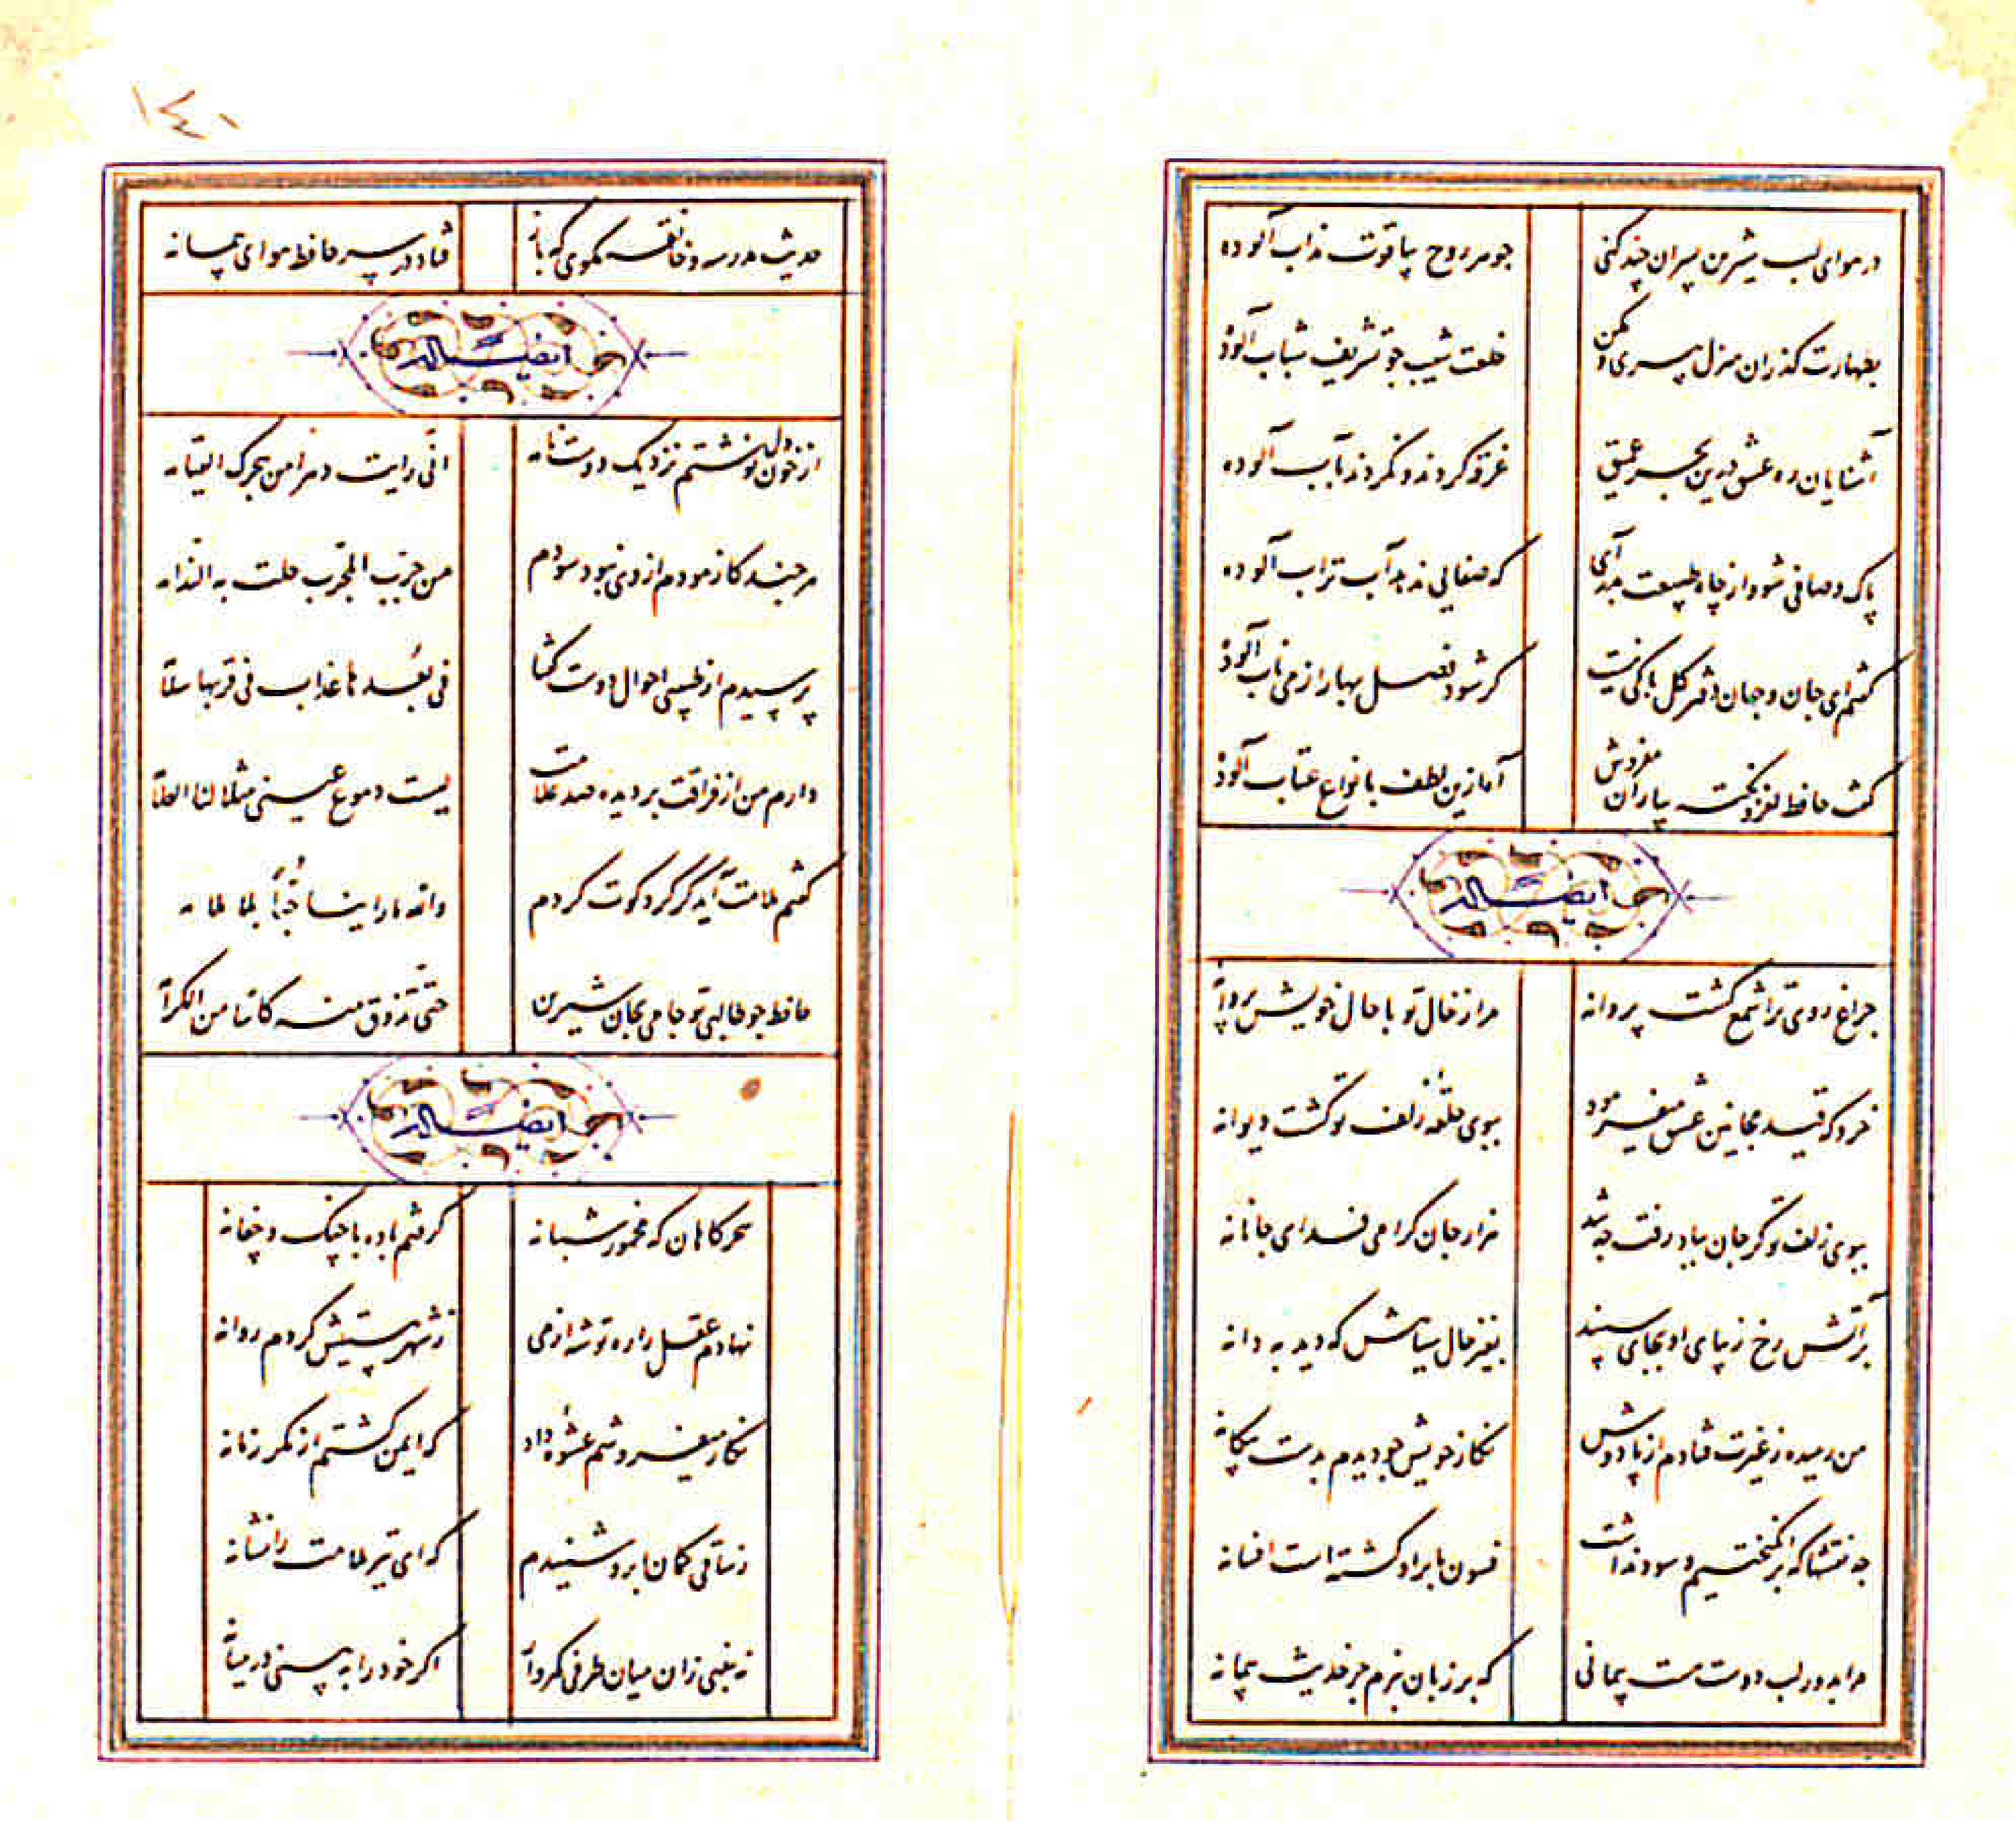 در هوای لب شیرین پسران چند کنی
جوهر روح بیاقوت مذاب آلوده
بطهارت گذران منزل پیری و مکن
خلعت شیب چو تشریف شباب آلوده
آشنایان ره عشق درین بحر عمیق
غرقه کردند و نکردند بآب آلوده
پاک و صافی شو و از چاه طبیعت بدر آی
که صفایی ندهد آب تراب آلوده
گفتم ای جان و جهان دفتر گل باکی نیست
کر شود فصل بهار از می ناب آلوده
گفت حافظ لغز و نکته بیاران مفروش
آه ازین لطف بانواع عتاب آلوده
و ایضا له
چراغ روی ترا شمع گشت پروانه
مرا ز خال تو با حال خویش پروا نه
خرد که قید مجانین عشق میفرمود
ببوی حلقه زلف تو گشت دیوانه
ببوی زلف تو گر جان بباد رفت چه شد
هزار جان گرامی فدای جانانه
بر آتش رخ زیبای او بجای سپند
بغیر خال سیاهش که دید به دانه
من رمیده ز غیرت فتادم از پا دوش
نگار خویش چو دیدم بدست بیگانه
چه نقشها که برانگیختیم و سود نداشت
فسون ما بر او گشته است افسانه
مرا بدور لب دوست هست پیمانی
که بر زبان نبرم جز حدیث پیمانه
١٤٠
حدیث مدرسه و خانقه مگوی که باز
فتاد در سر حافظ هوای پیمانه
و ایضا له
از خون دل نوشتم نزدیک دوست نامه
انّی رایت دهرا من هجرک القیامه
هر چند کازمودم از وی نبود سودم
من جرّب المجرّب حلّت به الندامه
پرسیدم از طبیبی احوال دوست گفتا
فی بُعدها عذاب فی قربها سلامه
دارم من از فراقت بر دیده صد علامت
لیست دموع عینی هذا لنا العلامه
گفتم ملامت آید گر گرد کوت گردم
والله ما راینا حُبّاً بلا ملامه
حافظ چو طالبی تو جامی بجان شیرین
حتّی تذوق منه کاسا من الکرامه
و ایضا له
سحرگاهان که مخمور شبانه
گرفتم باده با چنگ و چغانه
نهادم عقل را ره توشه از می
ز شهر هستیش کردم روانه
نگار میفروشم عشوه داد
که ایمن گشتم از مکر زمانه
ز ساقی کمان ابرو شنیدم
که ای تیر ملامت را نشانه
نه بندی زان میان طرفی کمروار
اگر خود را به بینی در میانه